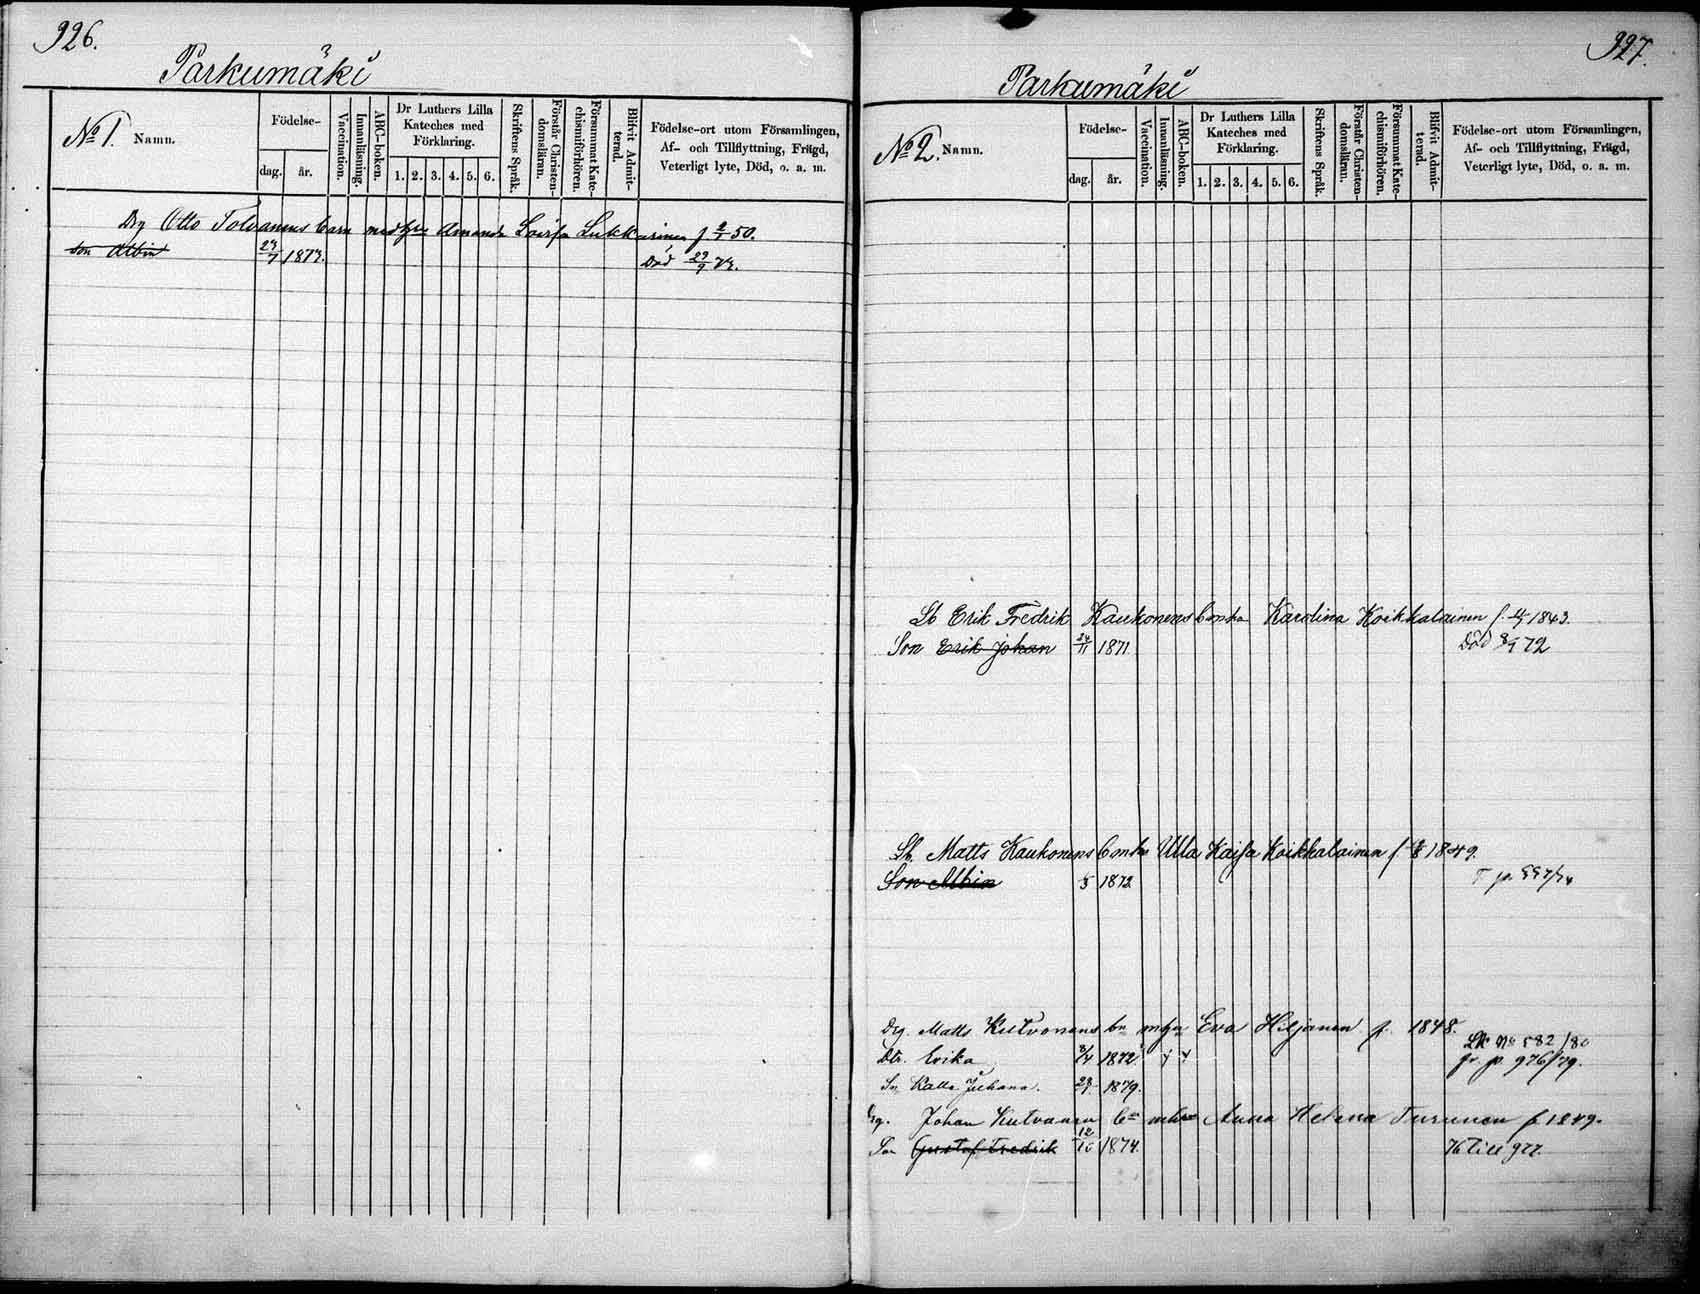 926.
Parkumäki
No 1. Namn.
Födelse-
dag. år.
Vaccination.
Innanläsning.
ABC-boken.
Dr Luthers Lilla
Kateches med
Förklaring.
1. 2. 3. 4. 5. 6.
Skriftens Språk.
Förstår Christen-
domsläran.
Försummat Kate-
chismiförhören.
Blifvit Admit-
terad.
Födelse-ort utom Församlingen,
Af- och Tillflyttning, Frägd,
Veterligt lyte, Död, o. a. m.
Drg Otto Tolvanens barn med Amanda Lovisa Lukkarinen f. 50.
Son Albin 1873. Död 29/9 73.
927.
Parkumäki
No 2. Namn.
Födelse-
dag. år.
Vaccination.
Innanläsning.
ABC-boken.
Dr Luthers Lilla
Kateches med
Förklaring.
1. 2. 3. 4. 5. 6.
Skriftens Språk.
Förstår Christen-
domsläran.
Försummat Kate-
chismiförhören.
Blifvit Admit-
terad.
Födelse-ort utom Församlingen,
Af- och Tillflyttning, Frägd,
Veterligt lyte, Död, o. a. m.
Lb Erik Fredrik Kaukonens b Karolina Koikkalainen f. 1843.
Son Erik Johan 24/11 1871 Död 72
Lb. Matts Kaukonens b Ulla Kaisa Koikkalainen f. 1849.
Son Albin 1872
Drg. Matts Kutvonens bn Eva Hiljanen f. 1848.
Lk No 582/80
Dtr. Erika 8/4 1872 fr. p. 976/79.
Sn Kalle Juhana. 1879.
Drg. Johan Kutvonen bn Anna Helena Turunen f 1849.
Son Gustaf Fredrik 12/10 1874. till 977.